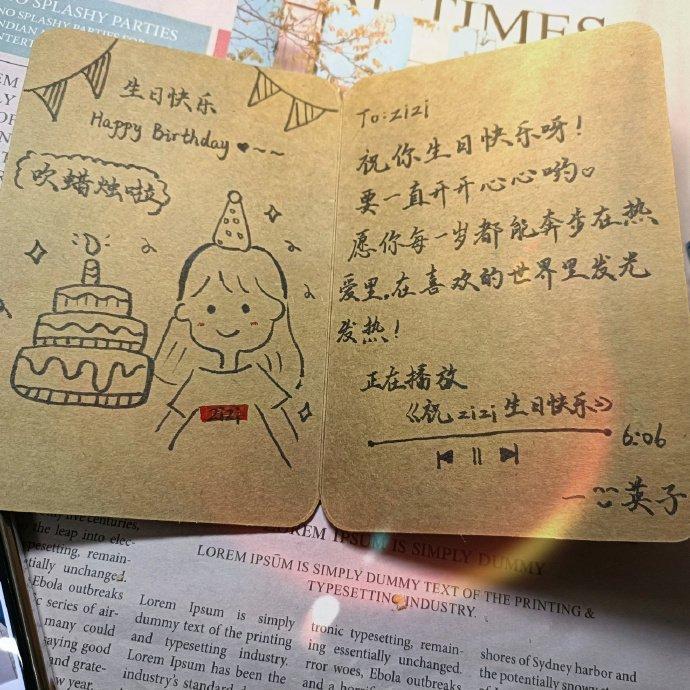 生日快乐
Happy Birthday
吹蜡烛啦
zizi
To:zizi
祝你生日快乐呀!
要一直开开心心哟。
愿你每一岁都能奔步在热
爱里,在喜欢的世界里发光
发热!
正在播放
《祝zizi生日快乐》
6:06
一英子
SPLASHY PARTIES
NO SPLASHY PARTIES FOR
INDIAN
TIMES
LOREM IPSUM IS SIMPLY DUMMY
LOREM IPSŪM IS SIMPLY DUMMY TEXT OF THE PRINTING &
TYPESETTING INDUSTRY.
five centuries,
the leap into elec-
typesetting, remain-
tially unchanged.
Ebola outbreaks
series of air-
many could
saying good
and grate-
year.
Lorem Ipsum is simply
dummy text of the printing
and typesetting industry.
Lorem Ipsum has been the
industry's standard
tronic typesetting, remain-
ing essentially unchanged.
rror woes, Ebola outbreaks
and a
shores of Sydney harbor and
the potentially